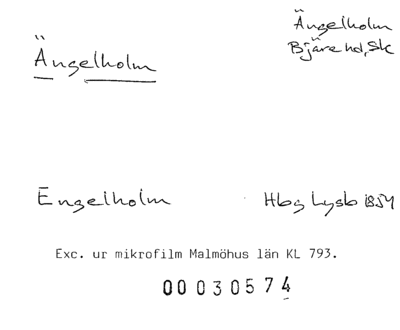 Ängelholm
Ängelholm
Bjäre hd, Sk
Engelholm
Hbg Lysb 1854
Exc. ur mikrofilm Malmöhus län KL 793.
00 030574